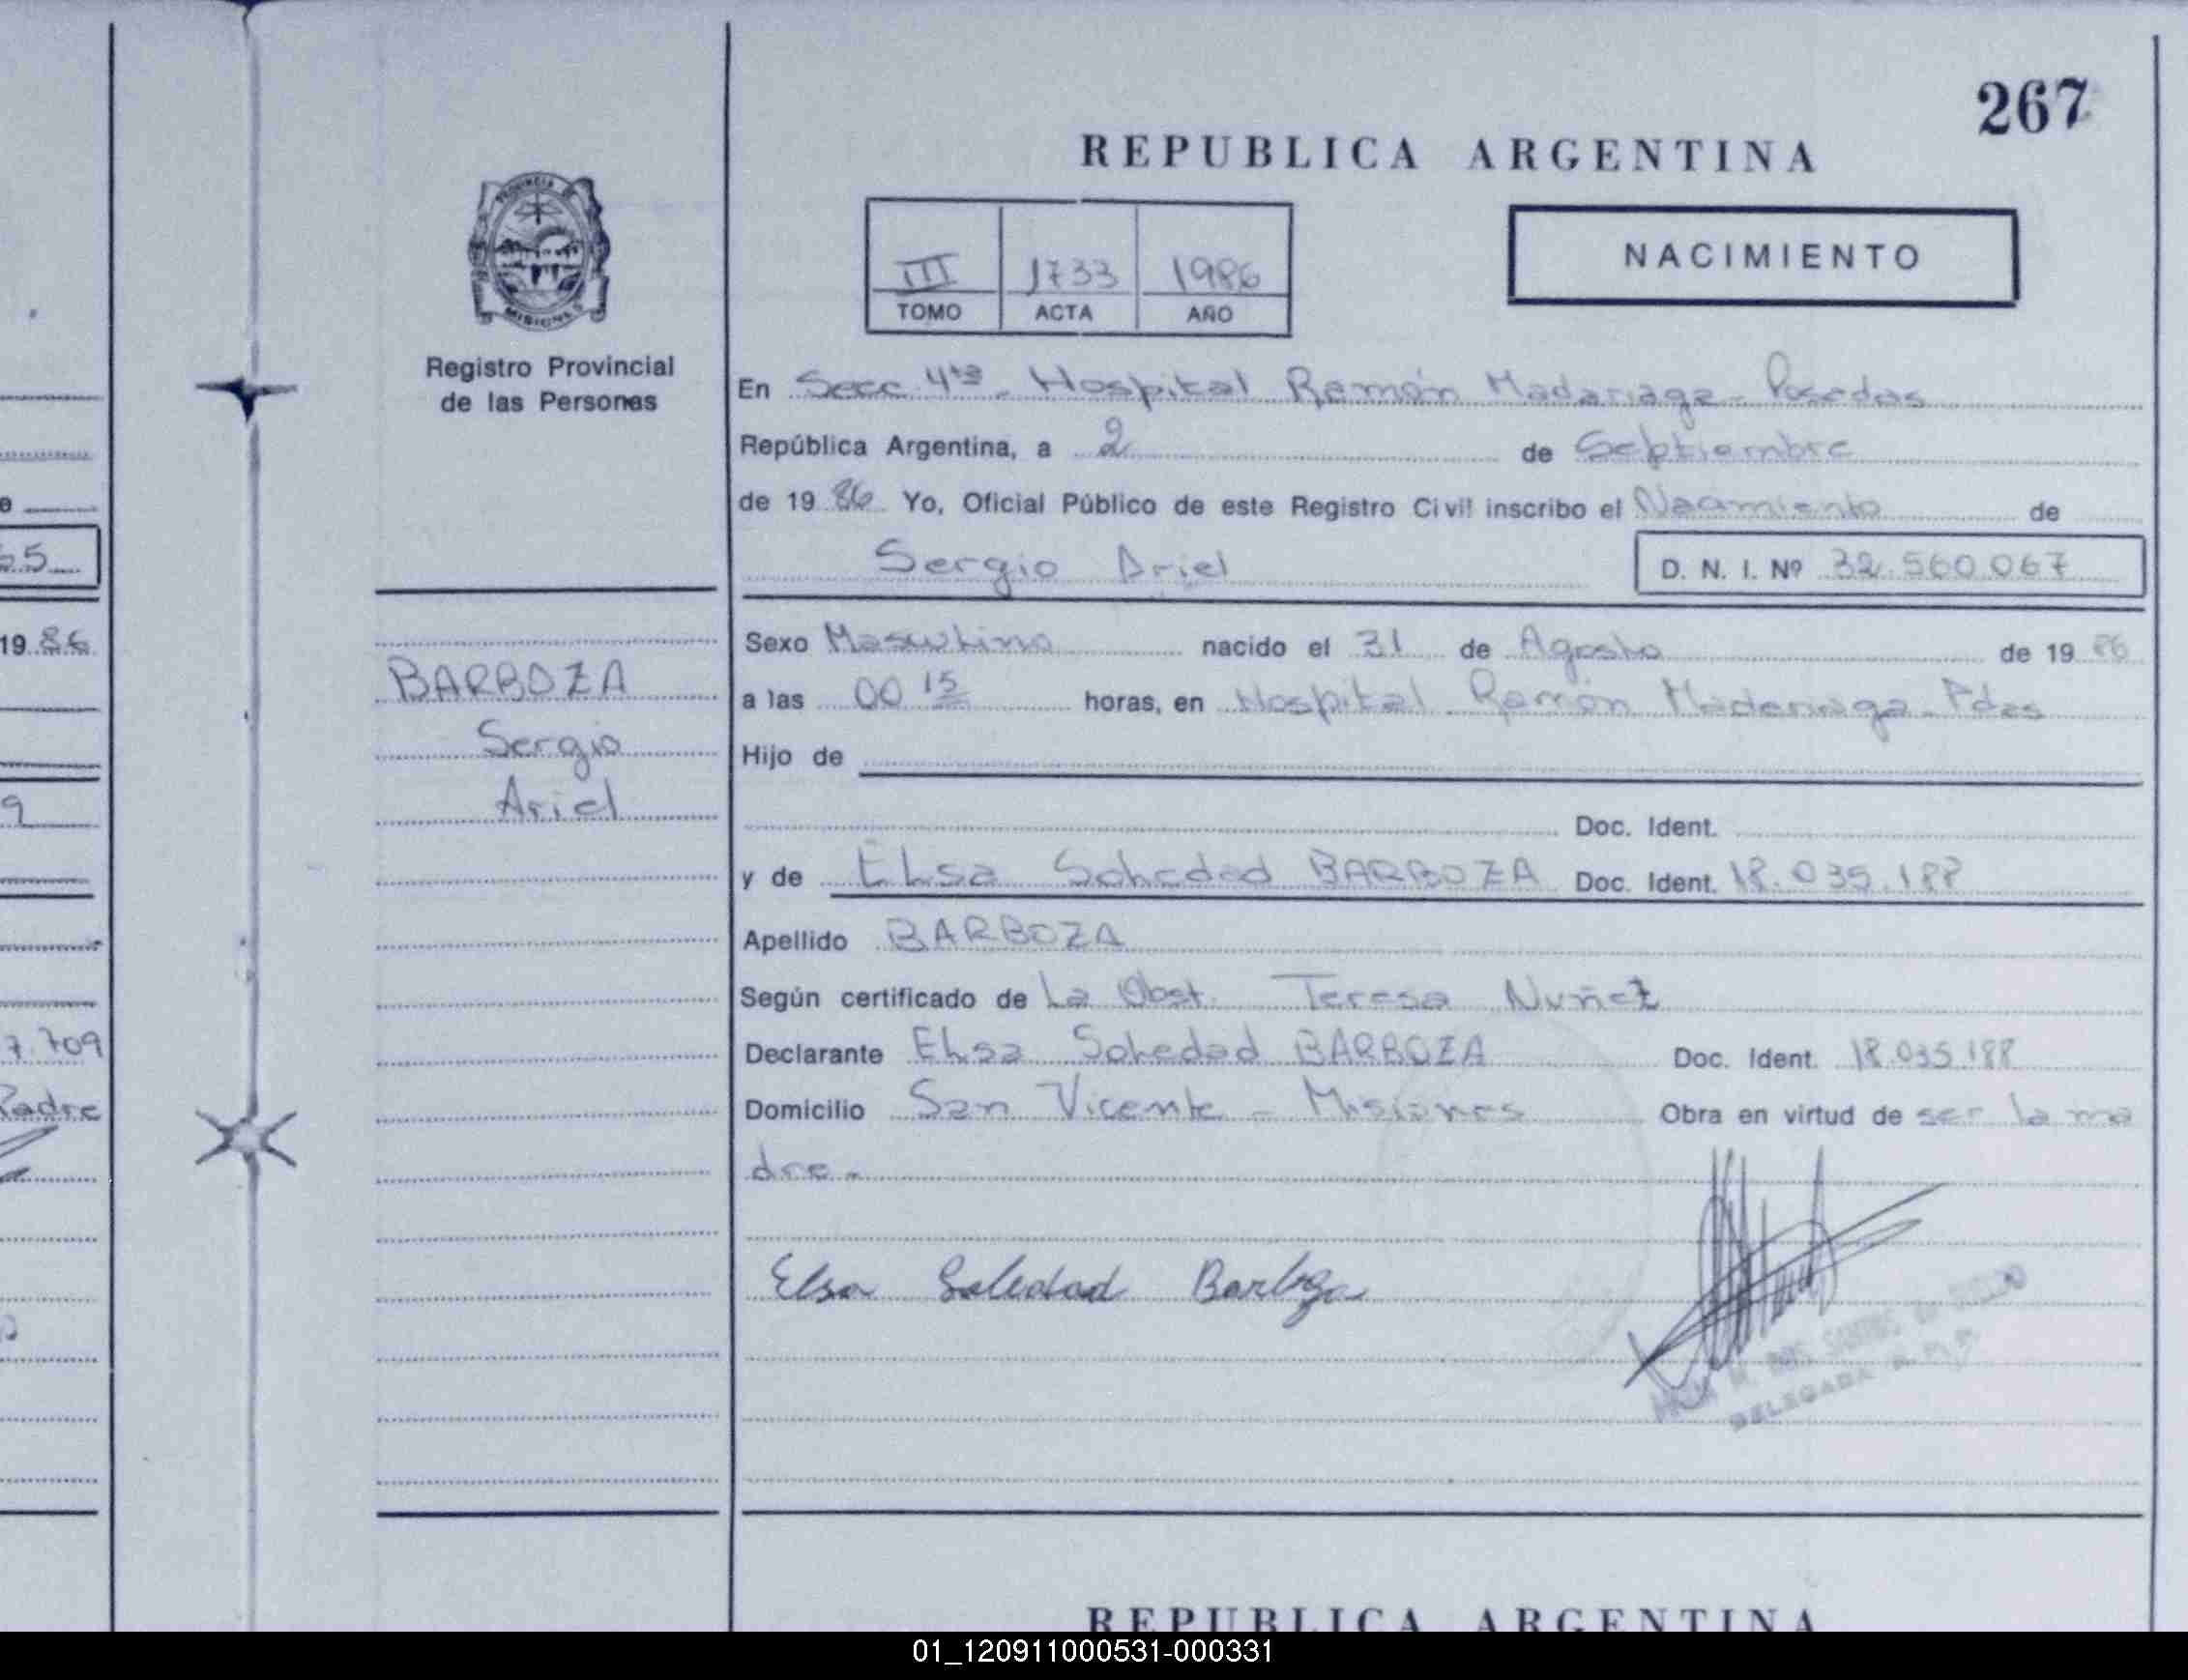 267
REPUBLICA ARGENTINA
PROVINCIA DE
MISIONES
III 1733 1986
TOMO ACTA AÑO
NACIMIENTO
Registro Provincial
de las Personas
En Secc 4ta - Hospital Ramón Madariaga - Posadas
República Argentina, a 2 de Septiembre
de 19 86 Yo, Oficial Público de este Registro Civil inscribo el Nacimiento de
Sergio Ariel D. N. I. Nº 32.560.067
Sexo Masculino nacido el 31 de Agosto de 19 86
a las 00 15 horas, en Hospital Ramón Madariaga - Pdas
Hijo de
Doc. Ident.
y de Elsa Soledad BARBOZA Doc. Ident. 18.035.188
Apellido BARBOZA
Según certificado de La Obst. Teresa Nuñez
Declarante Elsa Soledad BARBOZA Doc. Ident. 18.035.188
Domicilio San Vicente - Misiones Obra en virtud de ser la ma
dre.-
Elsa Soledad Barboza
DELEGADA R. P. P.
BARBOZA
Sergio
Ariel
e
55
19 86
9
7.709
Padre
REPUBLICA ARGENTINA
01_120911000531-000331